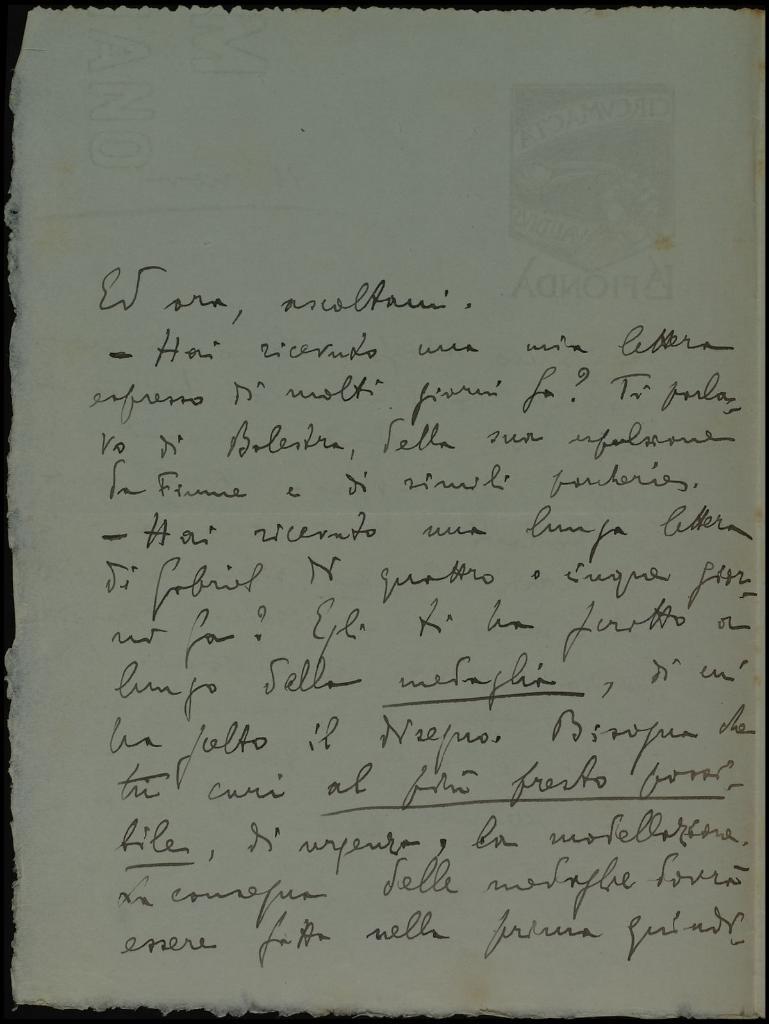 Ed ora, ascoltami.
- Hai ricevuto una mia lettera
espresso di molti giorni fa? Ti parla-
vo di Balestra, della sua espulsione
da Fiume e di simili porcherie.
- Hai ricevuto una lunga lettera
di Gabriel di quattro o cinque gior-
ni fa? Egli ti ha scritto a
lungo della medaglia, di cui
ha scelto il disegno. Bisogna che
tu curi al più presto possi-
bile, di urgenza, la modellazione.
La consegna delle medaglie dovrà
essere fatta nella prima quindi-
CIRCVMACTA
LA FIONDA